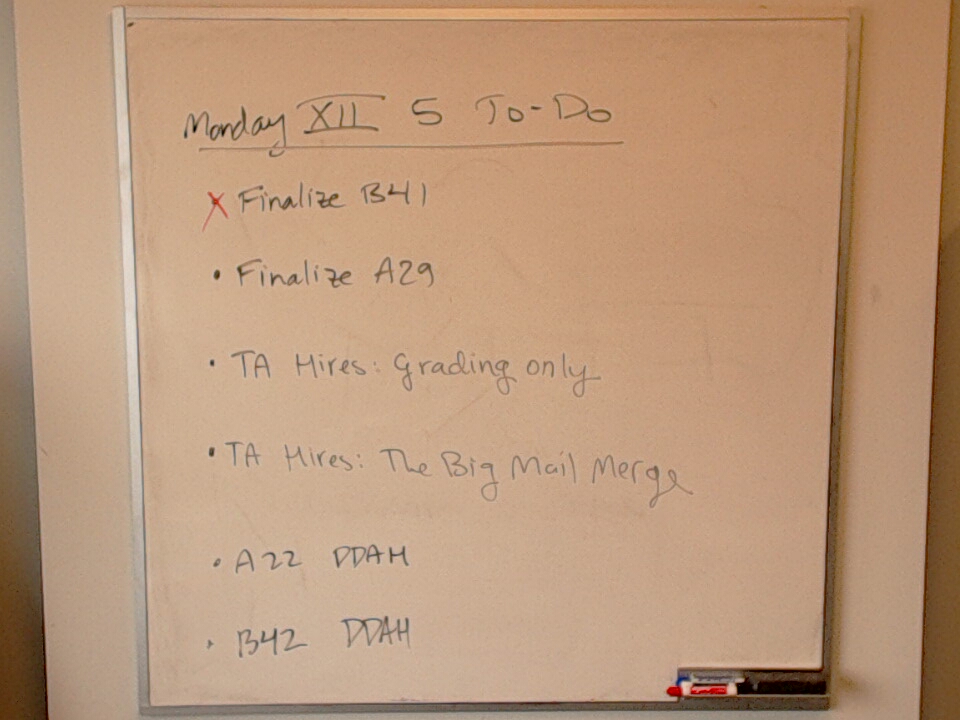 Monday XII 5 To-Do
x Finalize B41
• Finalize A29
• TA Hires: Grading only
• TA Hires: The Big Mail Merge
• A22 DDAH
• B42 DDAH